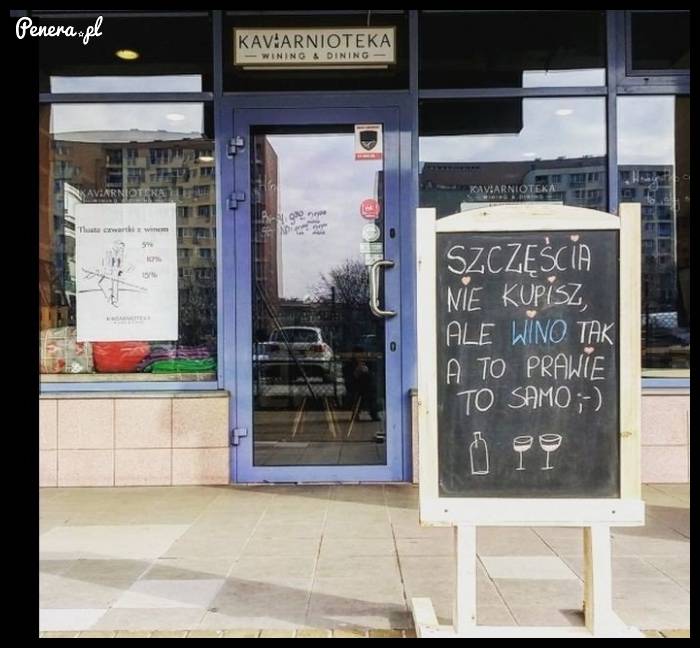 Penera.pl
KAVIARNIOTEKA
WINING & DINING
KAVIARNIOTEKA
WINING & DINING
Tłuste czwartki z winem
5%
10%
15%
KAVIARNIOTEKA
KAVIARNIOTEKA
WINING & DINING
SZCZĘŚCIA
NIE KUPISZ,
ALE WINO TAK
A TO PRAWIE
TO SAMO ;-)